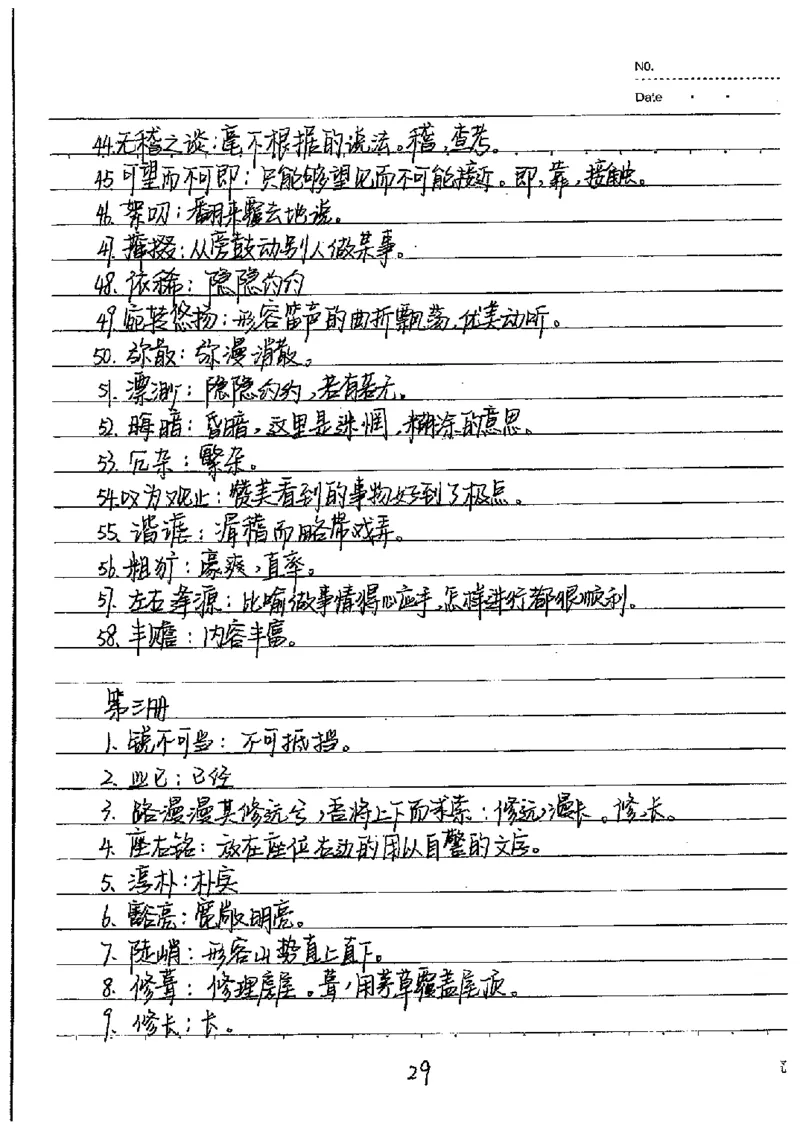 NO.
Date
44.无稽之谈：毫不根据的说法。稽，查考。
45 可望而不可即：只能够望见而不可能接近。即，靠，接触。
46. 絮叨：翻来覆去地说。
47. 撺掇：从旁鼓动别人做某事。
48. 依稀：隐隐约约
49. 宛转悠扬：形容笛声的曲折飘荡，优美动听。
50. 弥散：弥漫消散。
51. 漂渺：隐隐约约，若有若无。
52. 晦暗：昏暗，这里是迷惘，糊涂的意思。
53. 冗杂：繁杂。
54.叹为观止：赞美看到的事物好到了极点。
55. 谐谑：滑稽而略带戏弄。
56. 粗犷：豪爽，直率。
57. 左右逢源：比喻做事情得心应手，怎样进行都很顺利。
58. 丰赡：内容丰富。
第三册
1. 锐不可当：不可抵挡。
2. 业已：已经
3. 路漫漫其修远兮，吾将上下而求索：修远，漫长。修，长。
4. 座右铭：放在座位右边的用以自警的文字。
5. 淳朴：朴实
6. 豁亮：宽敞明亮。
7. 陡峭：形容山势直上直下。
8. 修葺：修理房屋。葺，用茅草覆盖屋顶。
9. 修长：长。
29